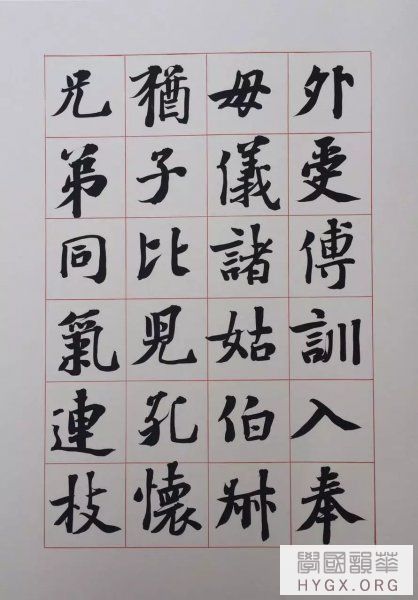 外受傅訓入奉
母儀諸姑伯叔
猶子比兒孔懷
兄弟同氣連枝
華韻國學
HYGX.ORG